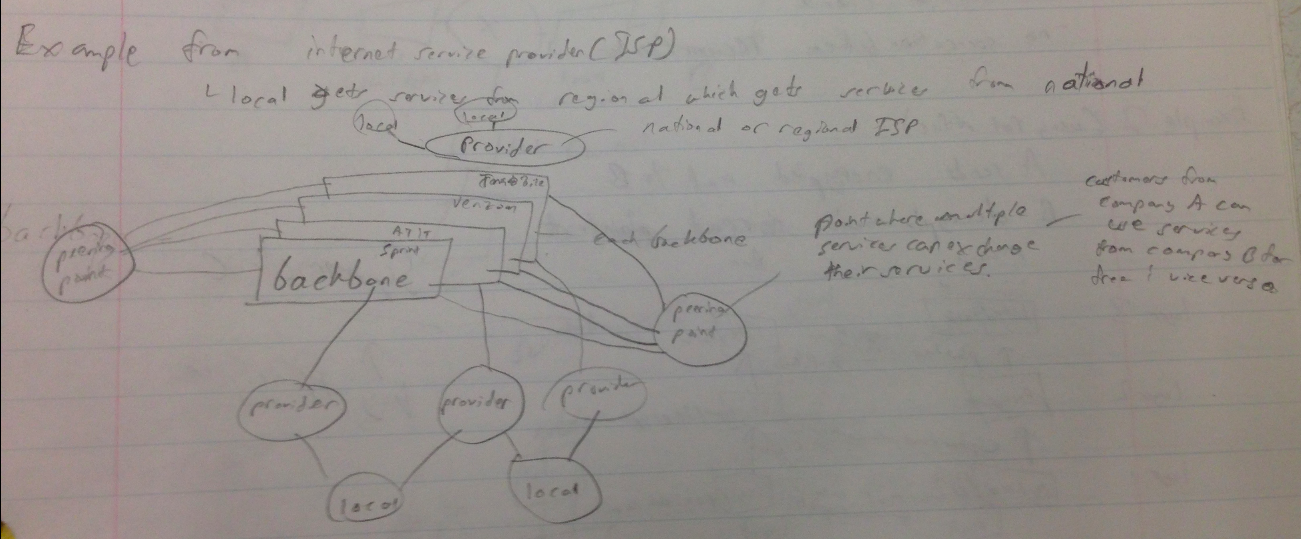 Example from internet service provider (ISP)
local gets services from regional which gets services from national
local local
Provider national or regional ISP
Verizon
AT&T
Sprint
backbone
each backbone
peering
point
point where multiple
services can exchange
their services.
customers from
company A can
use services
from company B for
free / vice versa
peering
point
provider provider provider
local local